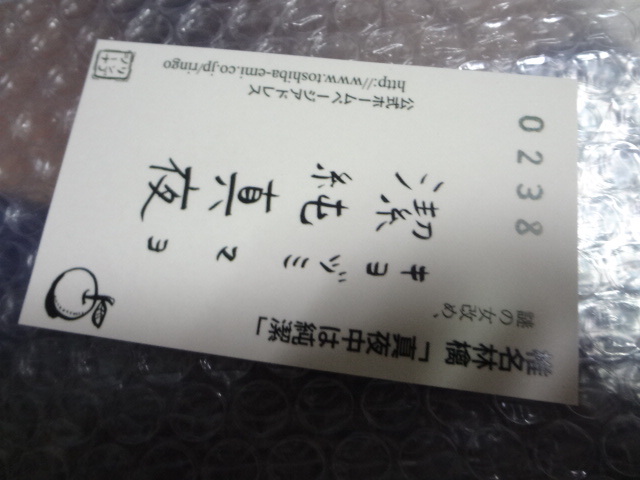 椎名林檎「真夜中は純潔」
謎の女改め、
キヨヅミ マヨ
潔純真夜
公式ホームページアドレス
http://www.toshiba-emi.co.jp/ringo
0238